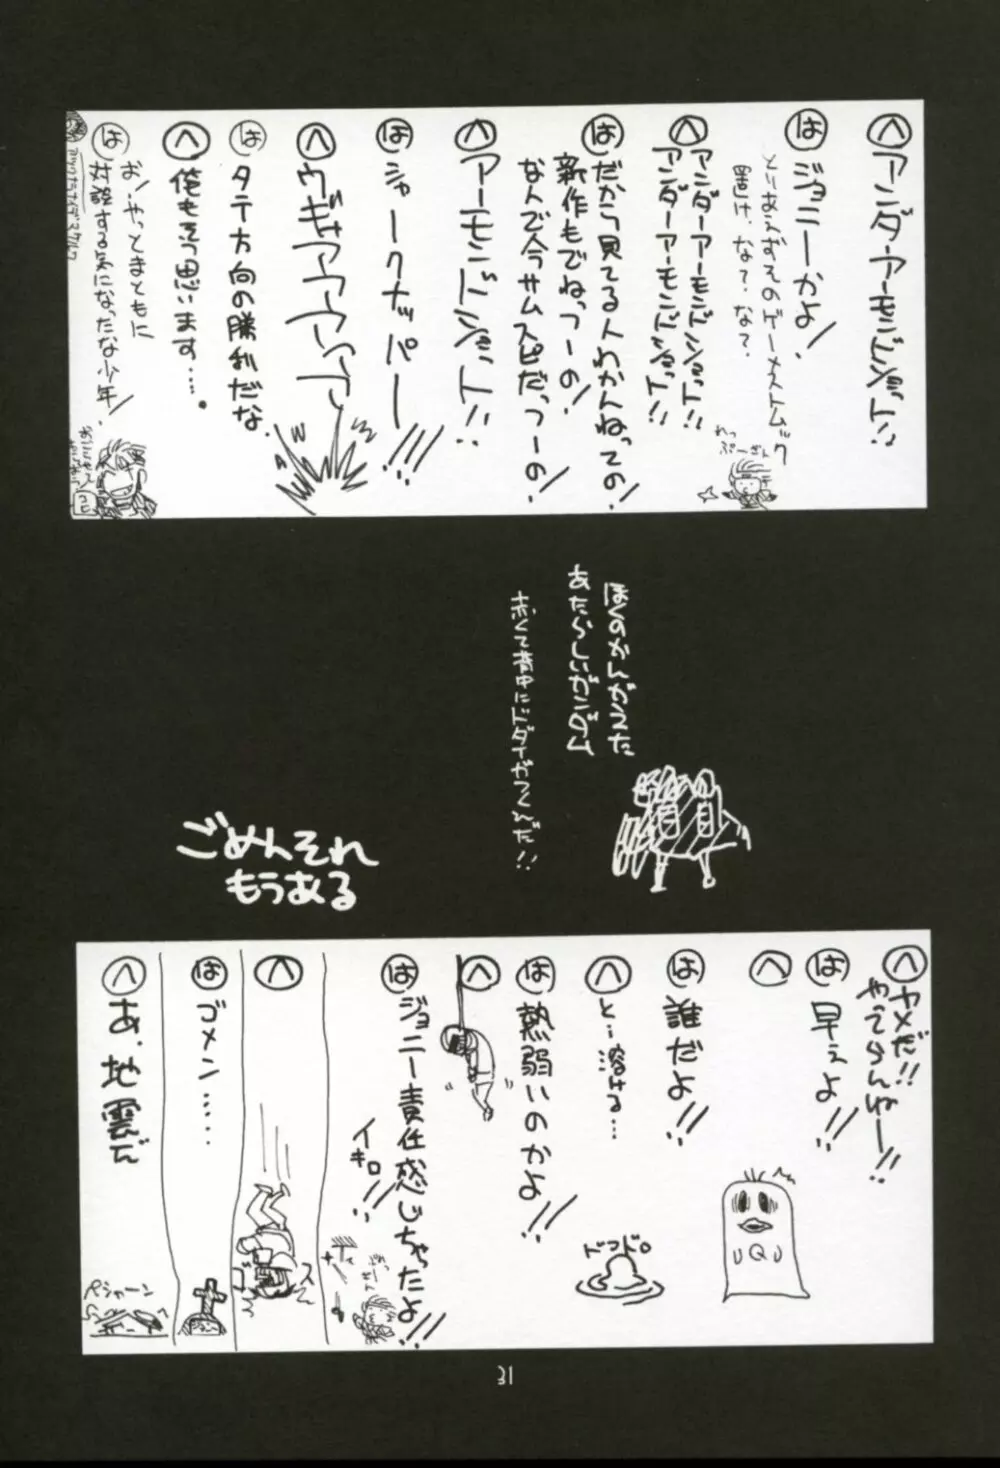 へ アンダーアーモンドショット!!
は ジョニーかよ!
とりあえずそのゲーメストムック
置け、な?な?
れっぷーけん
へ アンダーアーモンドショット!!
アンダーアーモンドショット!!
は だから見てる人わかんねっての!
新作もでねっつーの!
なんで今サムスピだっつーの!
へ アーモンドショット!!
は シャークナッパー!!!
へ ウギャアアアアア
は タテ方向の勝利だな
へ 俺もそう思います……。
は お!やっとまともに
対談する気になったな少年!
ぼくのかんがえた
あたらしいガンダム
赤くて背中にドダイがつくんだ!!
ごめんそれ
もうある
へ ヤメだ!!
やってらんねー!!
は 早ぇよ!!
へ
Q
は 誰だよ!!
へ と…溶ける…
ドロドロ
は 熱弱いのかよ!!
へ
は ジョニー責任感じちゃったよ!!
イキロ!!
へ
は ゴメン……
へ あ、地震だ
ペシャーン
31